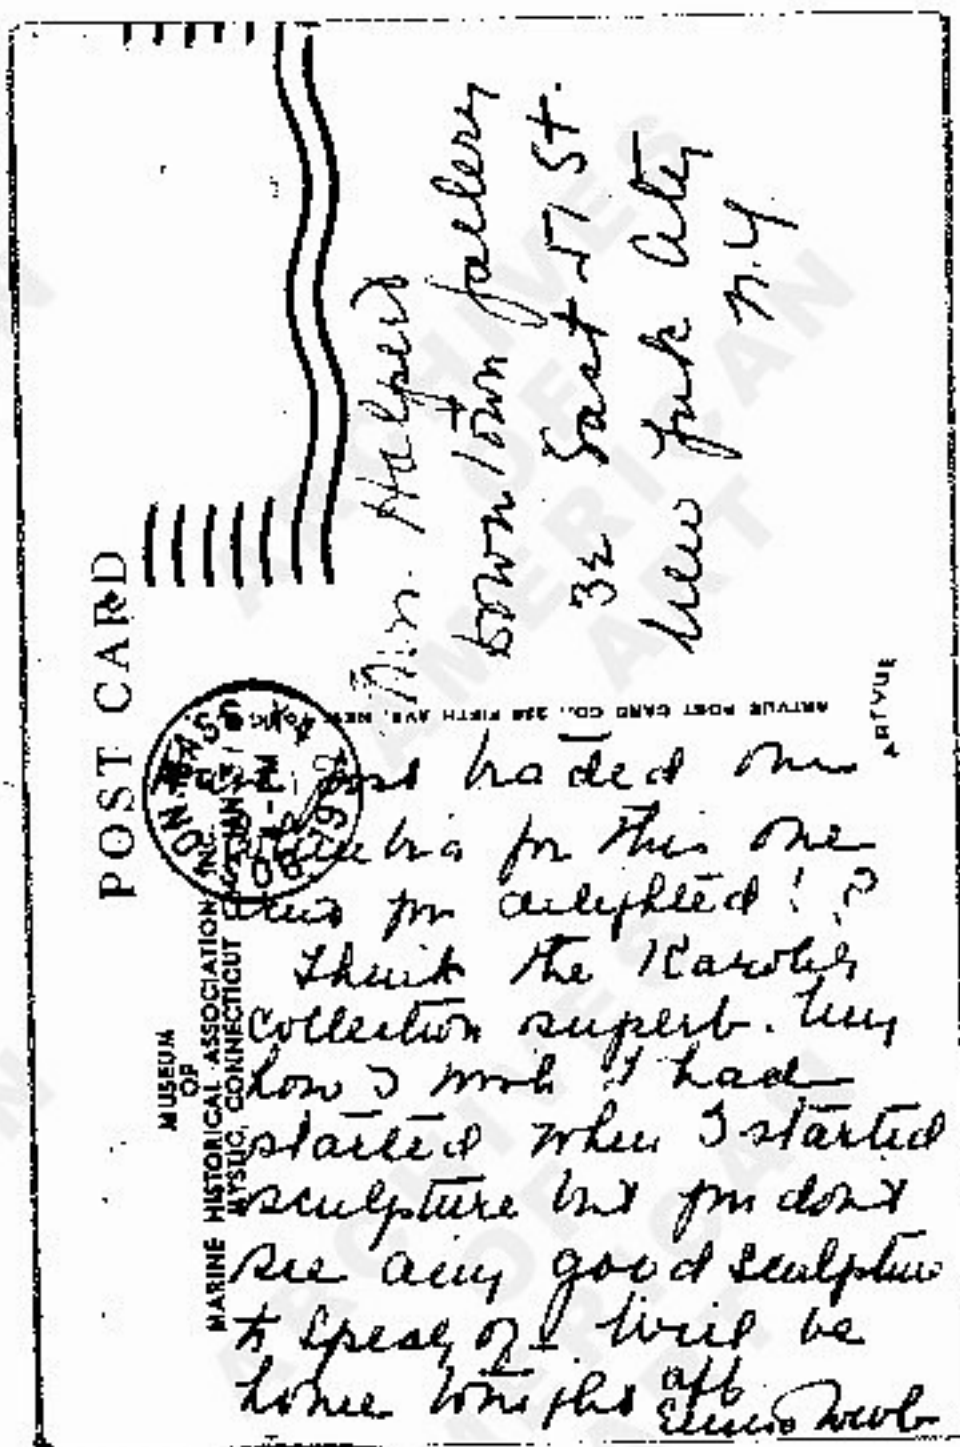 POST CARD
MUSEUM
OF
MARINE HISTORICAL ASSOCIATION, INC.
MYSTIC, CONNECTICUT
ARTVUE POST CARD CO., 225 FIFTH AVE. NEW
ARTVUE
MASS
1950
Halpert
Down Town Gallery
32 East 51 St.
New York City
N.Y
just traded one
for this one
delighted ! ?
Think the Karolik
Collection superb.
how I wish I had
started when I started
sculpture but you don't
see any good sculpture
to speak of – Will be
home tonight aff